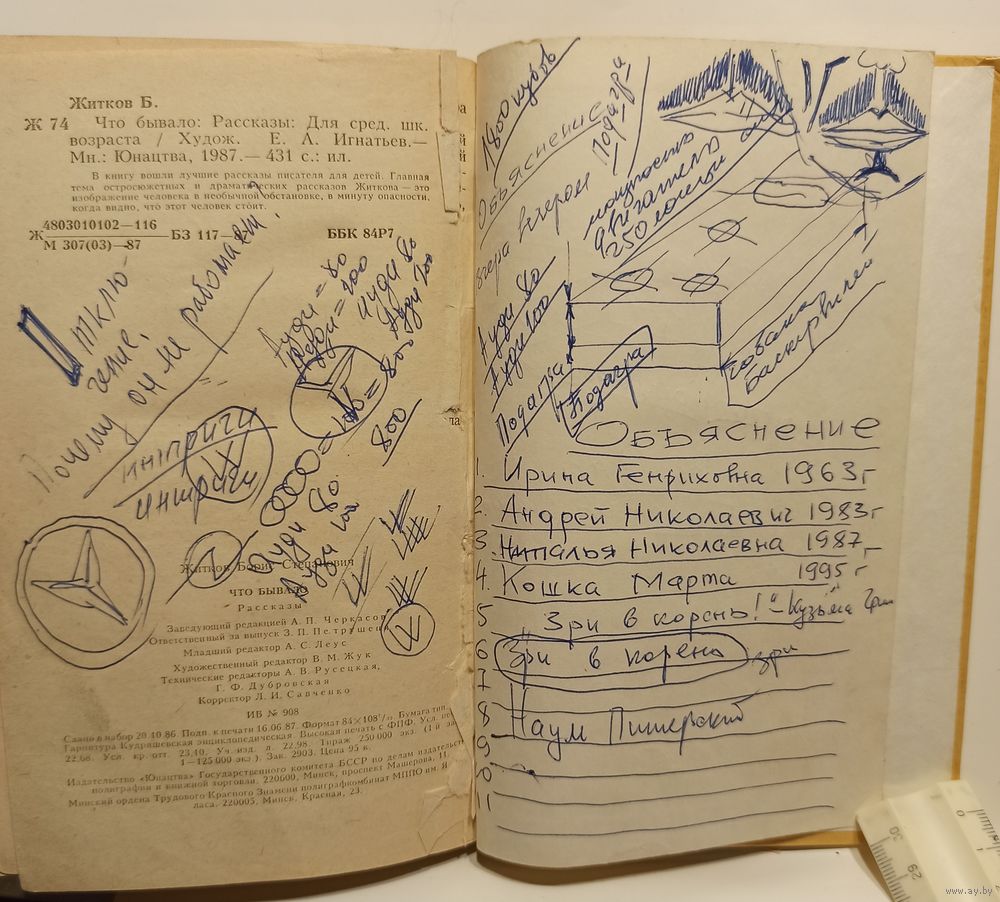 Житков Б.
Ж 74 Что бывало: Рассказы: Для сред. шк.
возраста / Худож. Е. А. Игнатьев.—
Мн.: Юнацтва, 1987.— 431 с.: ил.
В книгу вошли лучшие рассказы писателя для детей. Главная
тема остросюжетных и драматических рассказов Житкова — это
изображение человека в необычной обстановке, в минуту опасности,
когда видно, что этот человек стоит.
Ж 4803010102—116
М 307(03)—87
БЗ 117—
ББК 84Р7
Почему он не работает?
Ауди = 80
= 200
Ауди 80
Ауди 200
= 800
800
интриги
интриги
Ауди 80
Ауди 100
Житков Борис Степанович
ЧТО БЫВАЛО
Рассказы
Заведующий редакцией А. П. Черкасов
Ответственный за выпуск З. П. Петрушеня
Младший редактор А. С. Леус
Художественный редактор В. М. Жук
Технические редакторы А. В. Русецкая,
Г. Ф. Дубровская
Корректор Л. И. Савченко
ИБ № 908
Сдано в набор 20.10.86. Подп. к печати 16.06.87. Формат 84×108¹/₃₂. Бумага тип.
Гарнитура Кудряшевская энциклопедическая. Высокая печать с ФПФ. Усл. пе
22,68. Усл. кр. отт. 23,10. Уч. изд. л. 22,98. Тираж 250 000 экз. (1-й за
1—125 000 экз.). Зак. 2903. Цена 95 к.
Издательство «Юнацтва» Государственного комитета БССР по делам издательств,
полиграфии и книжной торговли. 220600, Минск, проспект Машерова, 11.
Минский ордена Трудового Красного Знамени полиграфкомбинат МППО им. Я.
ласа. 220005, Минск, Красная, 23.
1800 кубов
Объяснение
вчера вечером
Подагра
мощность
двигателя
250 лошади
Ауди 80
Ауди 100
Подагра
Подагра
Собака
Баскервилей
Объяснение
1. Ирина Генриховна 1963 г
2. Андрей Николаевич 1983 г
3. Наталья Николаевна 1987 г
4. Кошка Марта 1995 г
5 „Зри в корень!" - Кузьма
6 Зри в корень зри
7
8 Наум
9
10
11
0
1
30
29
www.ay.by